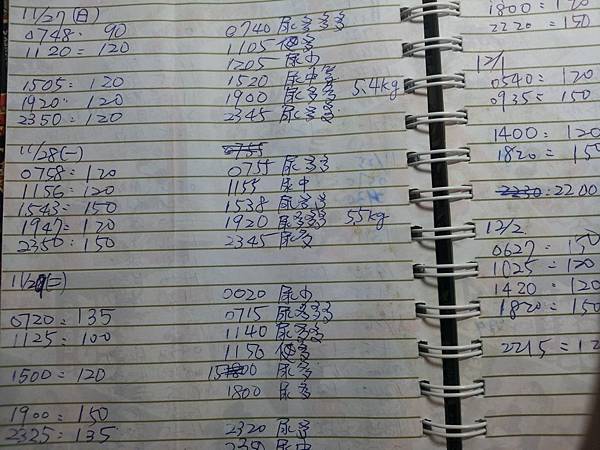 11/27(日)
0748: 90 0740 尿多多多
1120=120 1105 便多
1205 尿多
1505:120 1520 尿中多
1920:120 1900 尿多多 5.4kg
2350:120 2345 尿多多
11/28(一)
0758=120 0755 尿多多
1156=120 1155 尿中
1543=150 1538 尿多多
1947=120 1920 尿多多多 5.5kg
2350=150 2345 尿多
11/29(二)
0020 尿中
0720=135 0715 尿多多多
1125=100 1140 尿多多
1150 便多
1500=120 1500 尿多
1800 尿多
1900=150
2325=135 2320 尿多
尿中
1800=
2220=150
12/1
0540=120
0935=150
1400=120
1820=150
2230:2200
12/2
0627=150
1025=120
1420=120
1820=150
2215=12